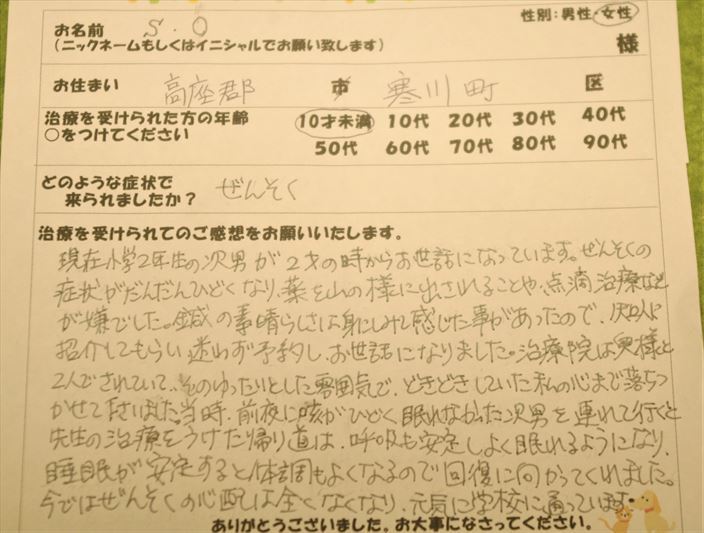 お名前 S.O 性別：男性・女性
（ニックネームもしくはイニシャルでお願い致します） 様
お住まい 高座郡 市 寒川町 区
治療を受けられた方の年齢 10才未満 10代 20代 30代 40代
○をつけてください 50代 60代 70代 80代 90代
どのような症状で
来られましたか？ ぜんそく
治療を受けられてのご感想をお願いいたします。
現在小学2年生の次男が2才の時からお世話になっています。ぜんそくの
症状がだんだんひどくなり、薬を山の様に出されることや、点滴治療など
が嫌でした。鍼の素晴らしさは身にしみて感じた事があったので、知人に
紹介してもらい迷わず予約し、お世話になりました。治療院は奥様と
2人でされていて、そのゆったりとした雰囲気で、どきどきしていた私の心まで落ちつ
かせて下さいました。当時、前夜に咳がひどく眠れなかった次男を連れて行くと
先生の治療をうけた帰り道は、呼吸も安定しよく眠れるようになり、
睡眠が安定すると体調もよくなるので回復に向かってくれました。
今ではぜんそくの心配は全くなくなり、元気に学校に通っています。
ありがとうございました。お大事になさってください。